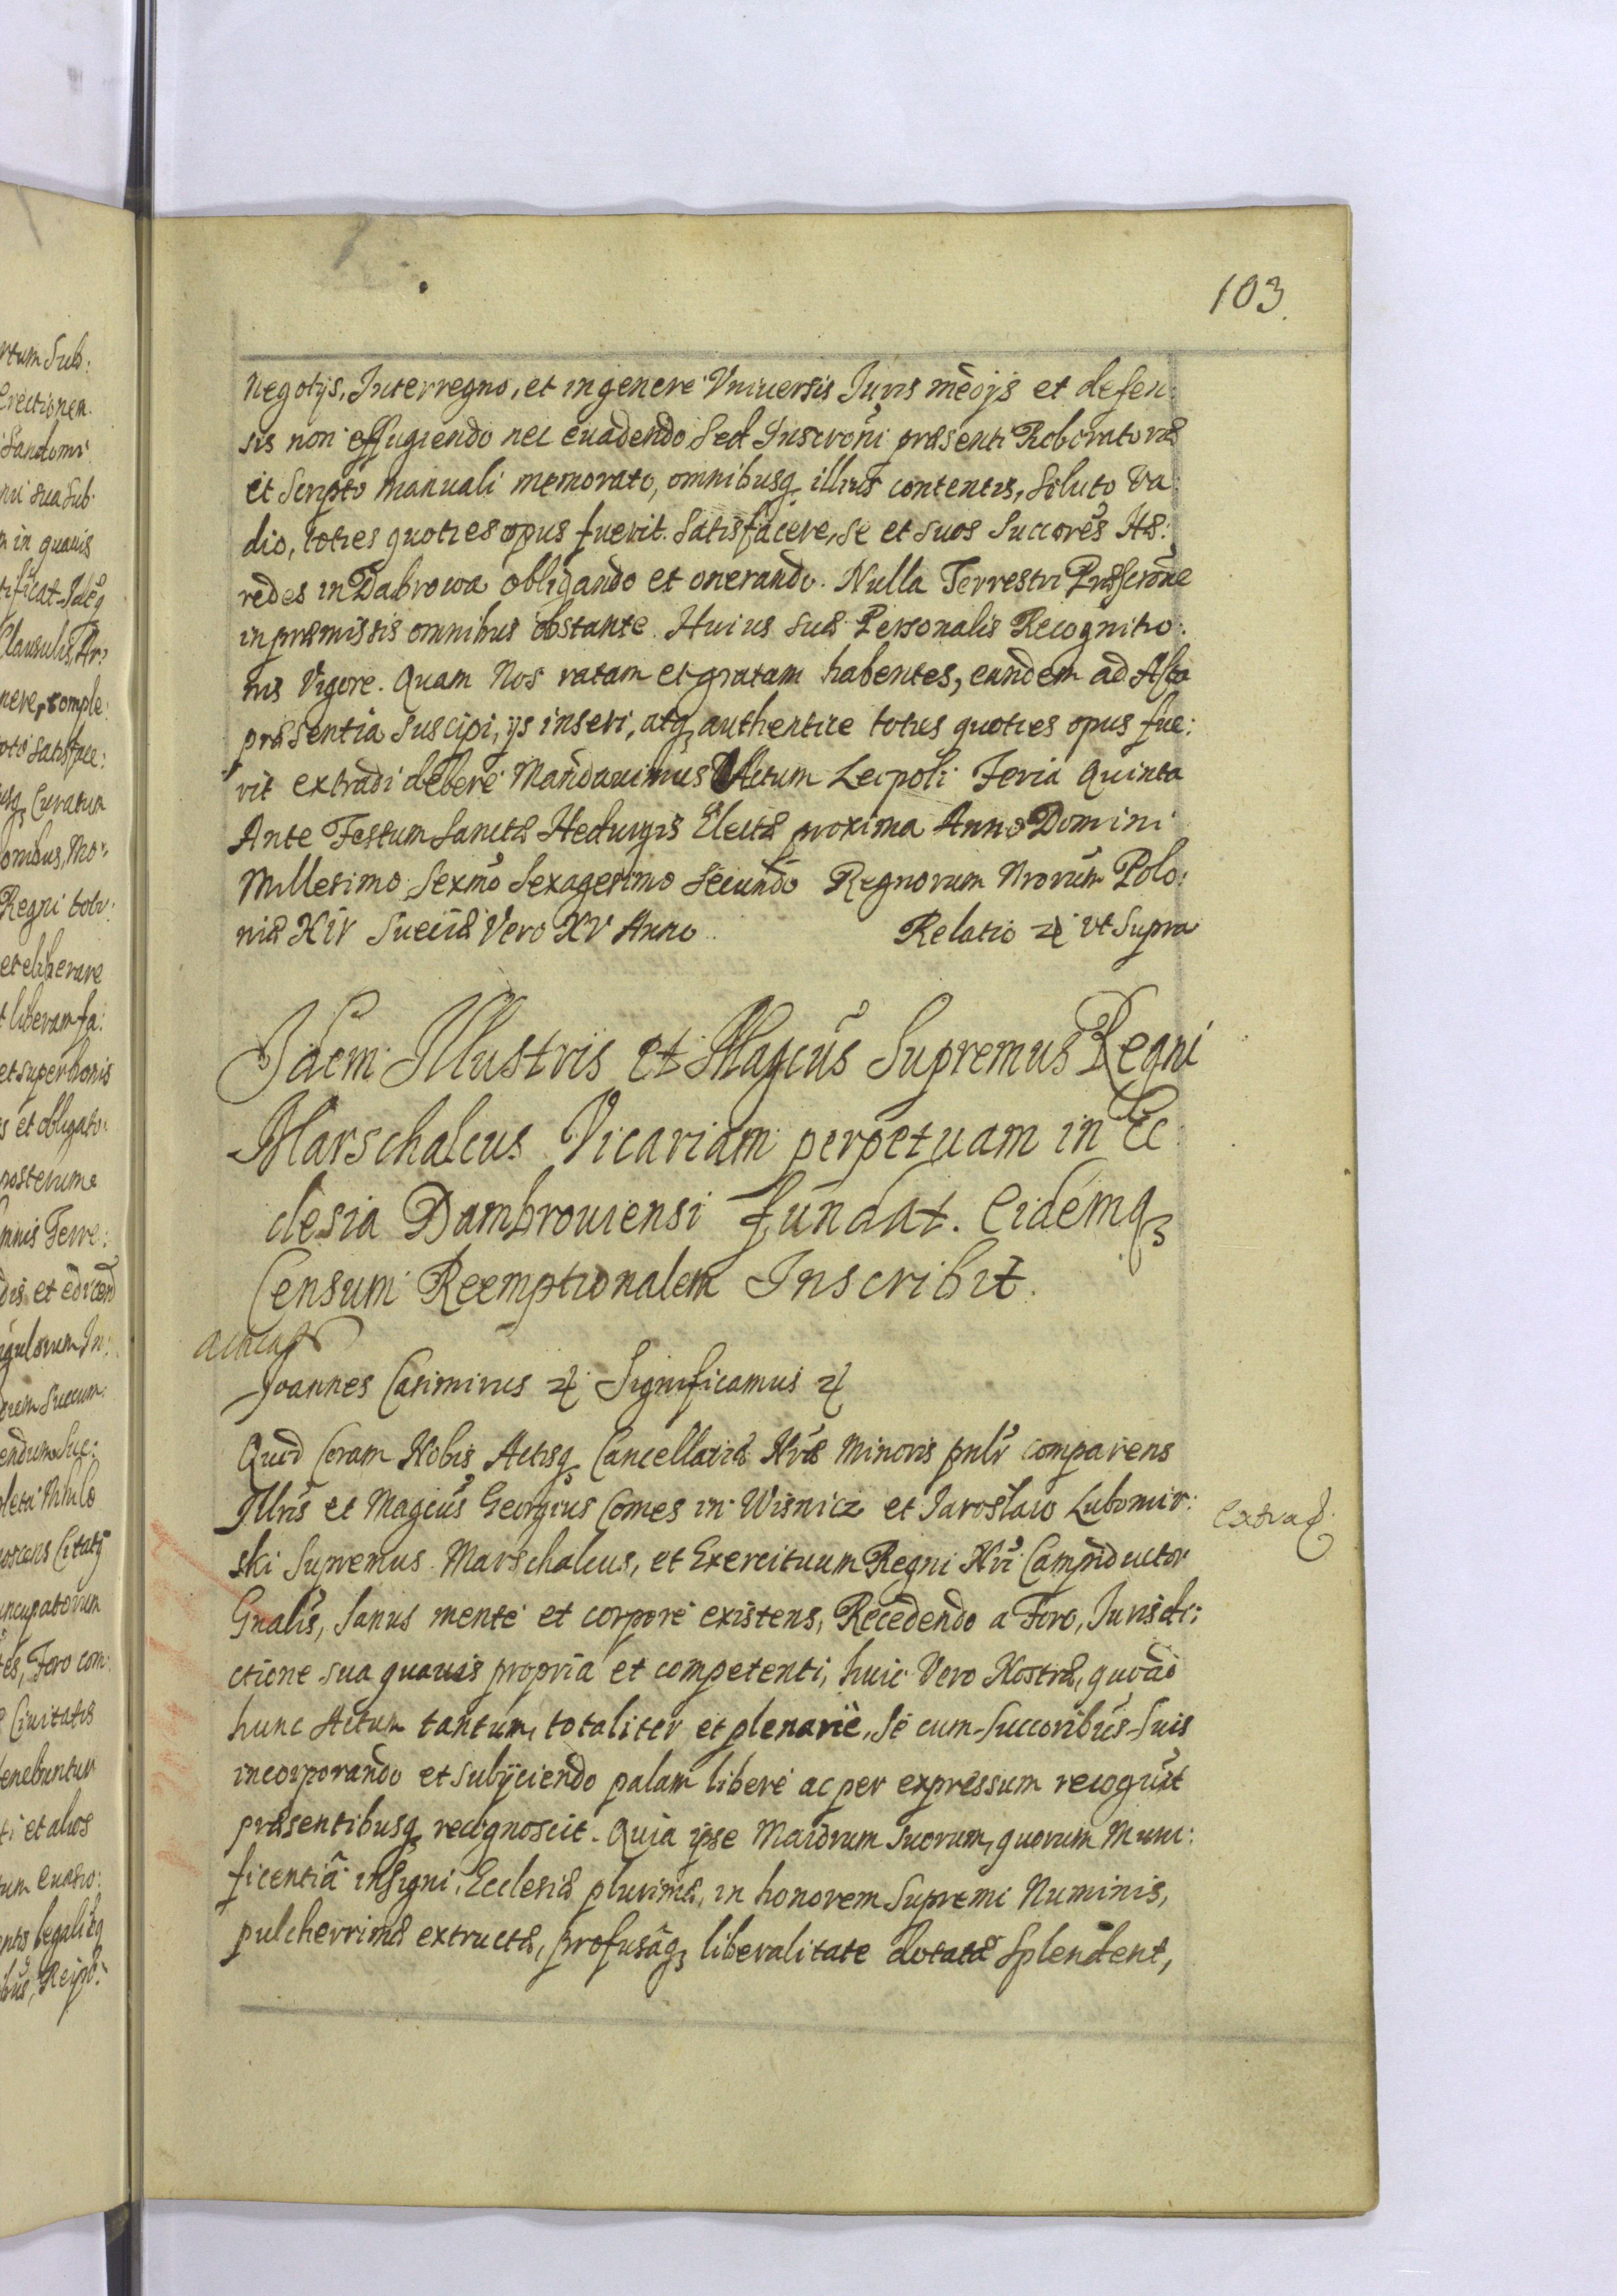 103.
negotijs, Interregno, et in genere Vniuersis Juris medijs et defen:
sis non effugiendo nec euadendo Sed Inscroni præsenti Roboratoriæ
et Scripto manuali memorato, omnibusq illius contentis, soluto Va
dio, toties quoties opus fuerit. Satisfacere, se et suos Succores Hæ:
redes in Dabrowa obligando et onerando. Nulla Terrestri Præscrone
in præmissis omnibus obstante. Huius suæ Personalis Recognitio:
nis Vigore. Quam Nos ratam et gratam habentes, eandem ad Acta
præsentia suscipi, ijs inseri, atq authentice toties quoties opus fue:
rit extradi debere Mandauimus Actum Leopoli Feria Quinta
Ante Festum Sanctæ Heduigis Electæ proxima Anno Domini
Millesimo Sexmo Sexagesimo Secundo Regnorum Nrorum Polo:
niæ XIV Sueciæ Vero XV Anno. Relatio &c vt Supra
Idem Illustris et Magcus Supremus Regni
Marschalcus Vicariam perpetuam in Ec
clesia Dambrouiensi fundat. Eidemq
Censum Reemptionalem Inscribit.
Joannes Casimirus &c Significamus &c
Quod Coram Nobis Actisq Cancellariæ Nræ Minoris pntr comparens
Illris et Magcus Georgius Comes in Wisnicz et Jaroslaw Lubomir:
ski Supremus Marschalcus, et Exercituum Regni Nri Campiductor
Gnalis, Sanus mente et corpore existens, Recedendo a Foro, Jurisdi:
ctione sua quauis propria et competenti, huic Vero Nostræ, quoad
hunc Actum tantum, totaliter et plenarie, Se cum Succoribus Suis
incorporando et subijciendo palam libere ac per expressum recogvit
præsentibusq recognoscit. Quia ipse Maiorum suorum, quorum Muni:
ficentiâ insigni, Ecclesiæ plurimæ, in honorem Supremi Numinis,
pulcherrimæ extructæ, profusaq liberalitate dotatæ Splendent,